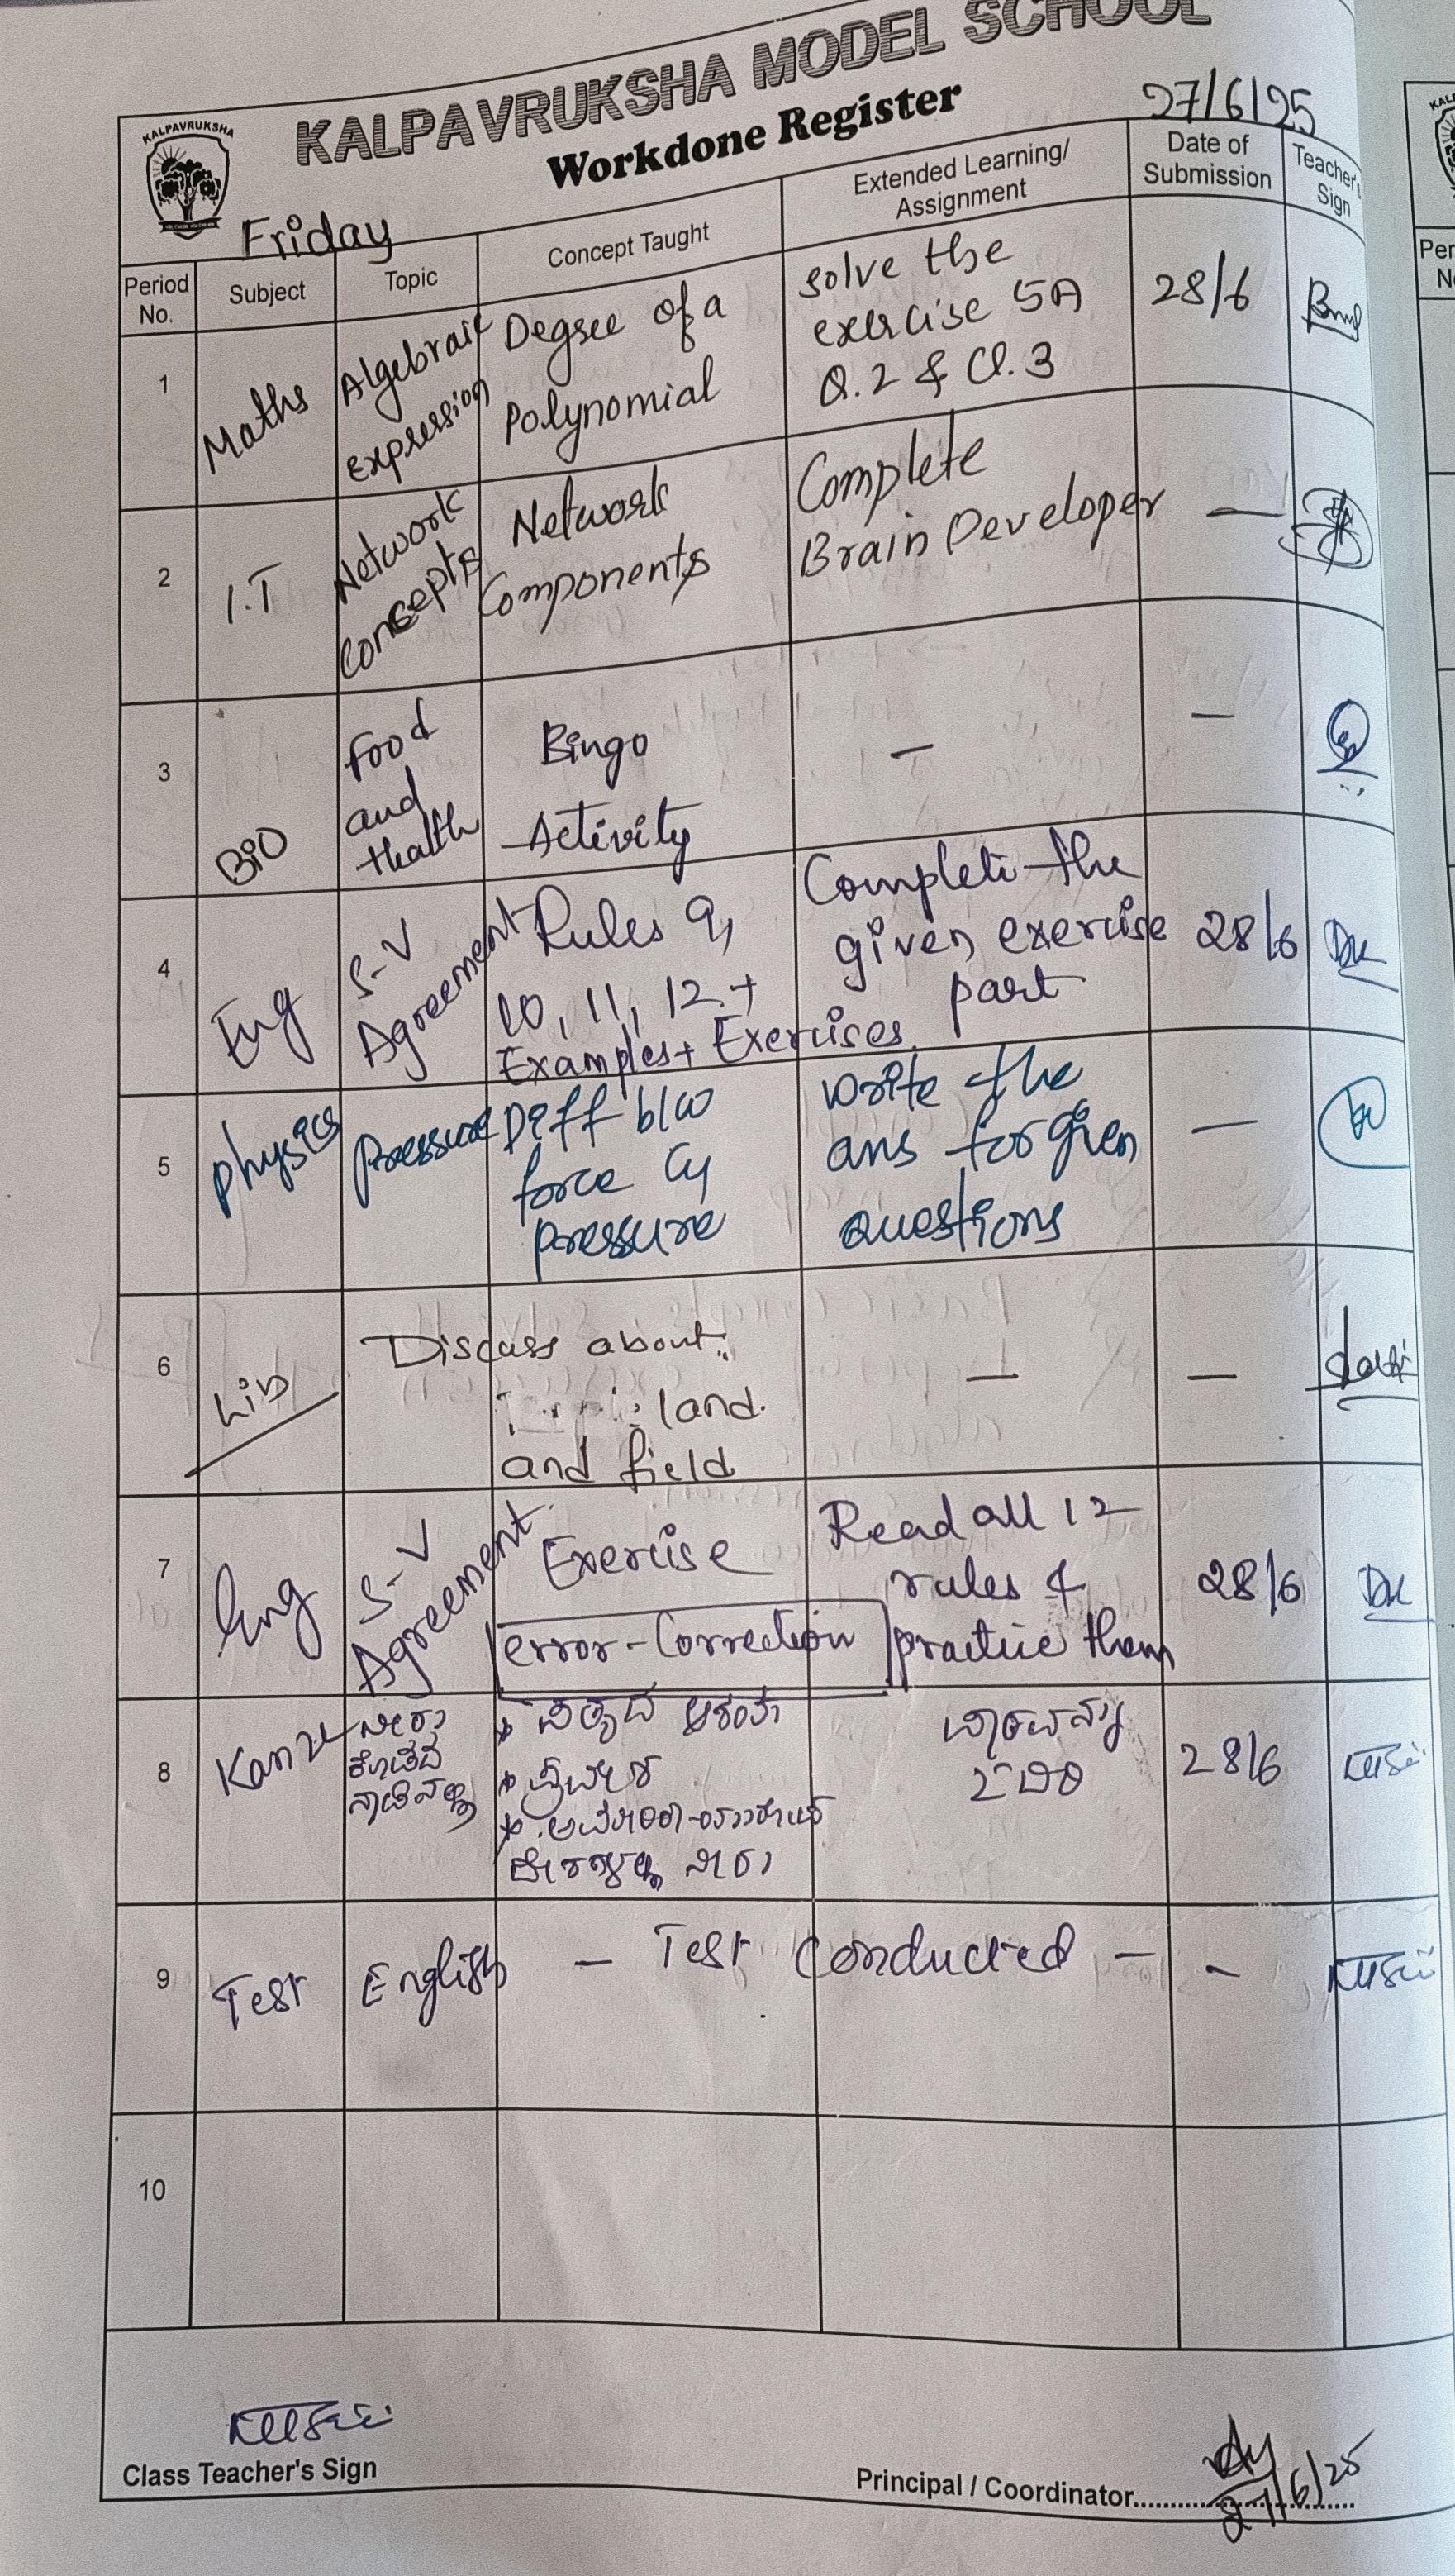 KALPAVRUKSHA MODEL SCHOOL
KALPAVRUKSHA
Workdone Register
27/6/25
Friday
Period No.
Subject
Topic
Concept Taught
Extended Learning/
Assignment
Date of
Submission
Teacher's
Sign
1
Maths
Algebraic
Expression
Degree of a
Polynomial
solve the
exercise 5A
Q.2 & Q.3
28/6
2
I.T
Network
Concepts
Network
Components
Complete
Brain Developer
—
3
BIO
Food
and
Health
Bingo
Activity
—
—
4
Eng
S-V
Agreement
Rules 9,
10, 11, 12 +
Examples + Exercises
Complete the
given exercise
part
28/6
5
Physics
Pressure
Diff b/w
force &
pressure
Write the
ans for given
questions
—
6
Lib
Discuss about
land.
and field
—
—
7
Eng
S-V
Agreement
Exercise
error-Correction
Read all 12
rules &
practice them
28/6
8
Kan
28/6
9
Test
English
- Test Conducted -
-
10
Class Teacher's Sign
Principal / Coordinator
27/6/25